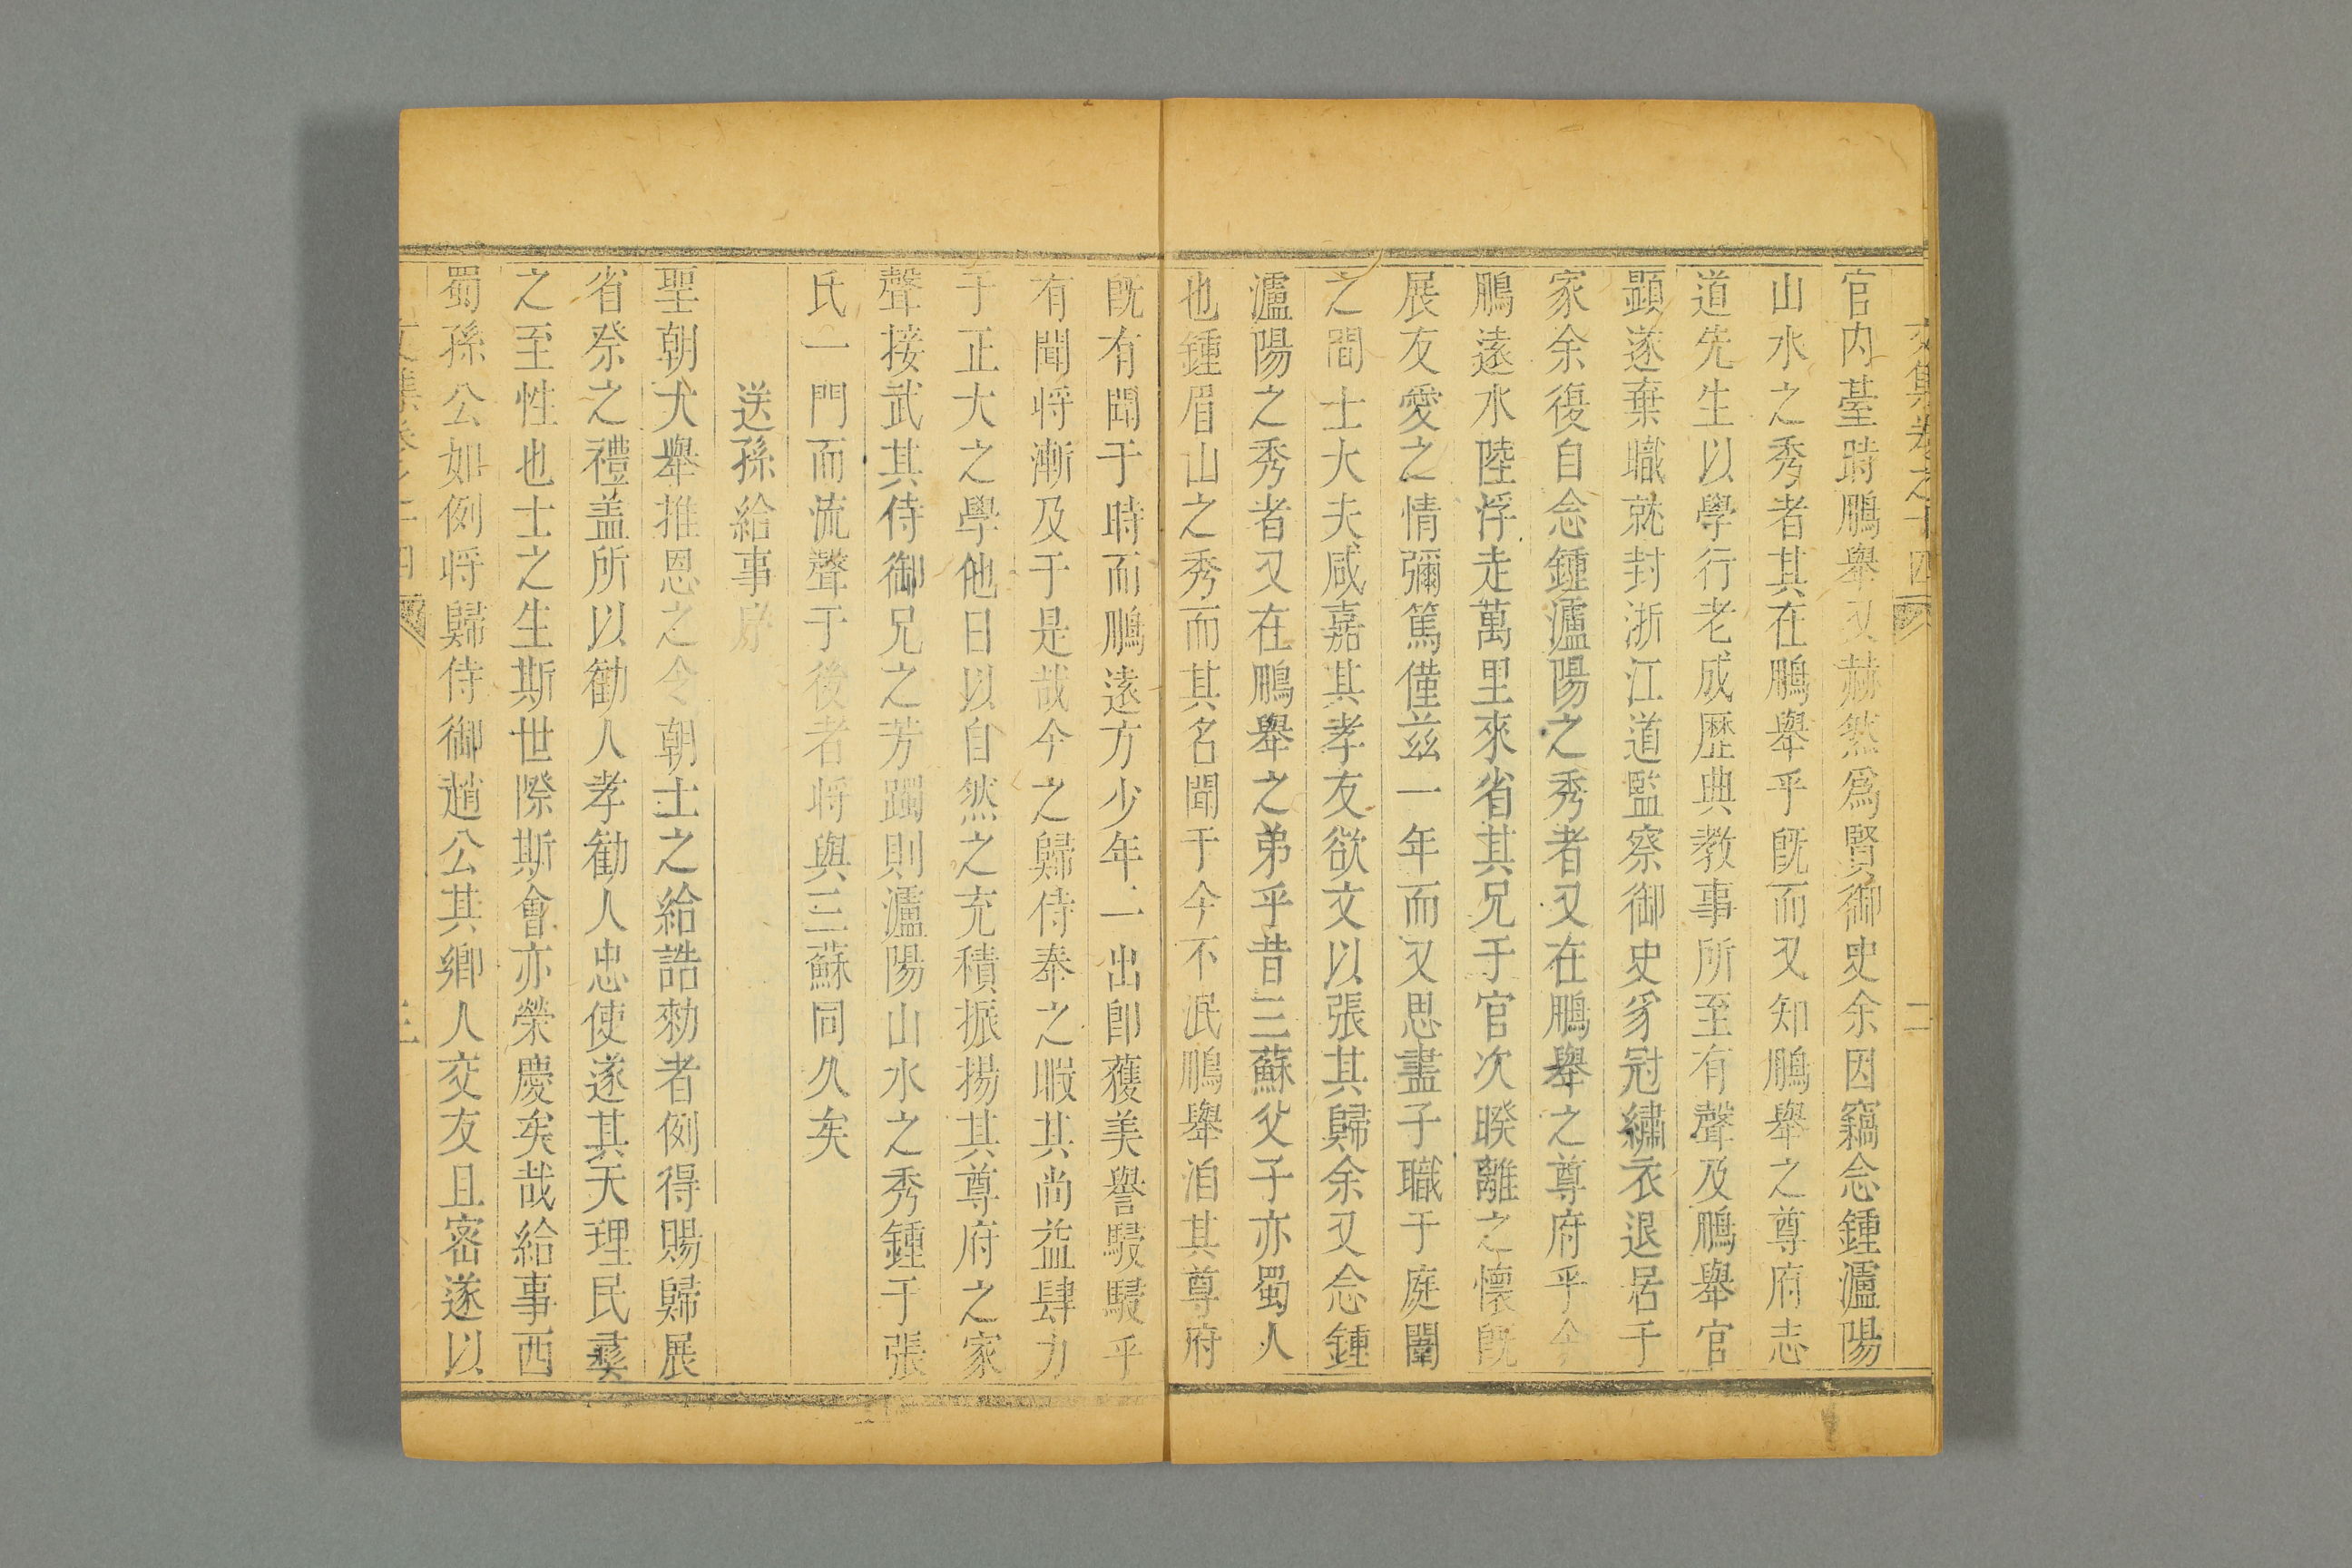 文集卷之十四
二
官内䑓時鵬舉又赫然爲賢御史余因竊念鍾瀘陽
山水之秀者其在鵬舉乎旣而又知鵬舉之尊府志
道先生以學行老成歷典教事所至有聲及鵬舉官
顕遂棄職就封浙江道監察御史豸冠繡衣退居于
家余復自念鍾瀘陽之秀者又在鵬舉之尊府乎今
鵬遠水陸浮走萬里來省其兄于官次暌離之懷旣
展友愛之情彌篤僅兹一年而又思盡子職于庭闈
之間士大夫咸嘉其孝友欲文以張其歸余又念鍾
瀘陽之秀者又在鵬舉之弟乎昔三蘇父子亦蜀人
也鍾眉山之秀而其名聞于今不泯鵬舉洎其尊府
旣有聞于時而鵬遠方少年一出卽獲美譽駸駸乎
有聞将漸及于是哉今之歸侍奉之暇其尚益肆力
于正大之學他日以自然之充積振揚其尊府之家
聲接武其侍御兄之芳躅則瀘陽山水之秀鍾于張
氏一門而流聲于後者将與三蘇同久矣
送孫給事序
聖朝大舉推恩之令朝士之給誥勑者例得賜歸展
省祭之禮盖所以勸人孝勸人忠使遂其天理民彝
之至性也士之生斯世際斯會亦榮慶矣哉給事西
蜀孫公如例将歸侍御趙公其鄉人交友且密遂以
文集卷之十四
三